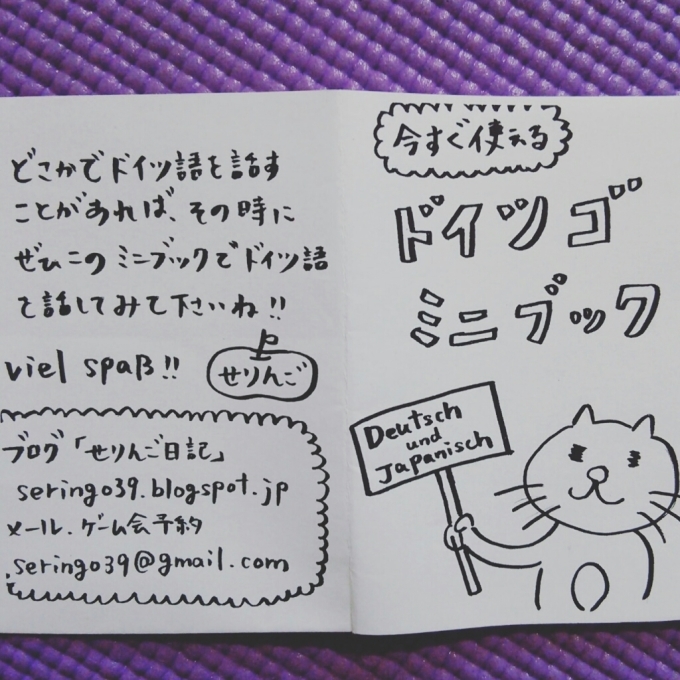 どこかでドイツ語を話す
ことがあれば、その時に
ぜひこのミニブックでドイツ語
を話してみて下さいね!!
viel spaß!!
せりんご
ブログ「せりんご日記」
seringo39.blogspot.jp
メール.ゲーム会予約
seringo39@gmail.com
今すぐ使える
ドイツゴ
ミニブック
Deutsch
und
Japanisch